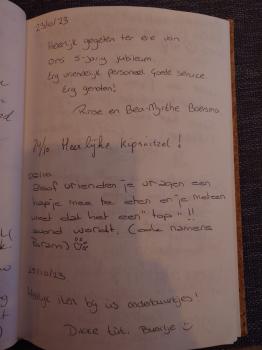 23/10/23
Heerlijk gegeten ter ere van
ons 5-jarig jubileum.
Erg vriendelijk personeel. Goede service.
Erg genoten!
Rinse en Bea-Myrthe Boersma
24/10 Heerlijke Kipsnitzel!
Goof vrienden je vragen een
hapje mee te eten en je meteen
weet dat het een "top"!!
avond wordt. (ook namens
Bram)
29/10/23
Hearlijk iten bij ús onderbuurtjes!
Dikke tút.